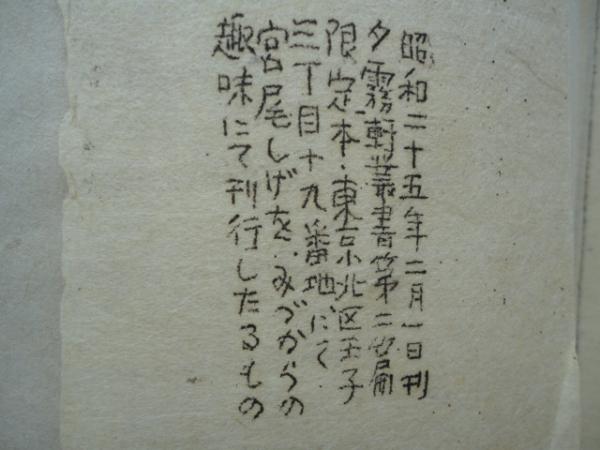 昭和二十五年二月一日刊
夕霧軒叢書第二篇
限定本・東京北区王子
三丁目十九番地にて
宮尾しげを、みづからの
趣味にて刊行したるもの